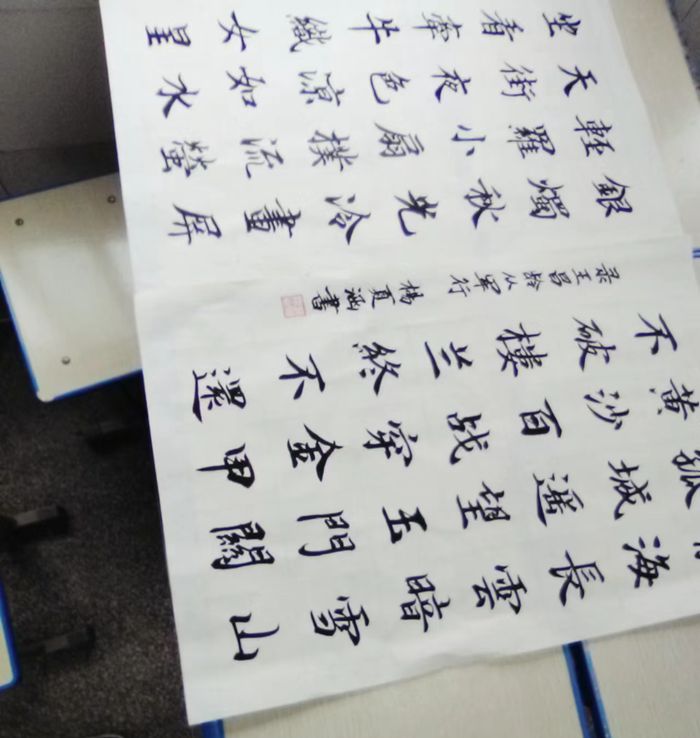 海長雲暗雪山
孤城遥望玉門關
黄沙百战穿金甲
不破樓兰終不還
录王昌龄从軍行
楊夏涵書
銀燭秋光冷畫屏
輕羅小扇撲流螢
天街夜色凉如水
坐看牵牛織女星